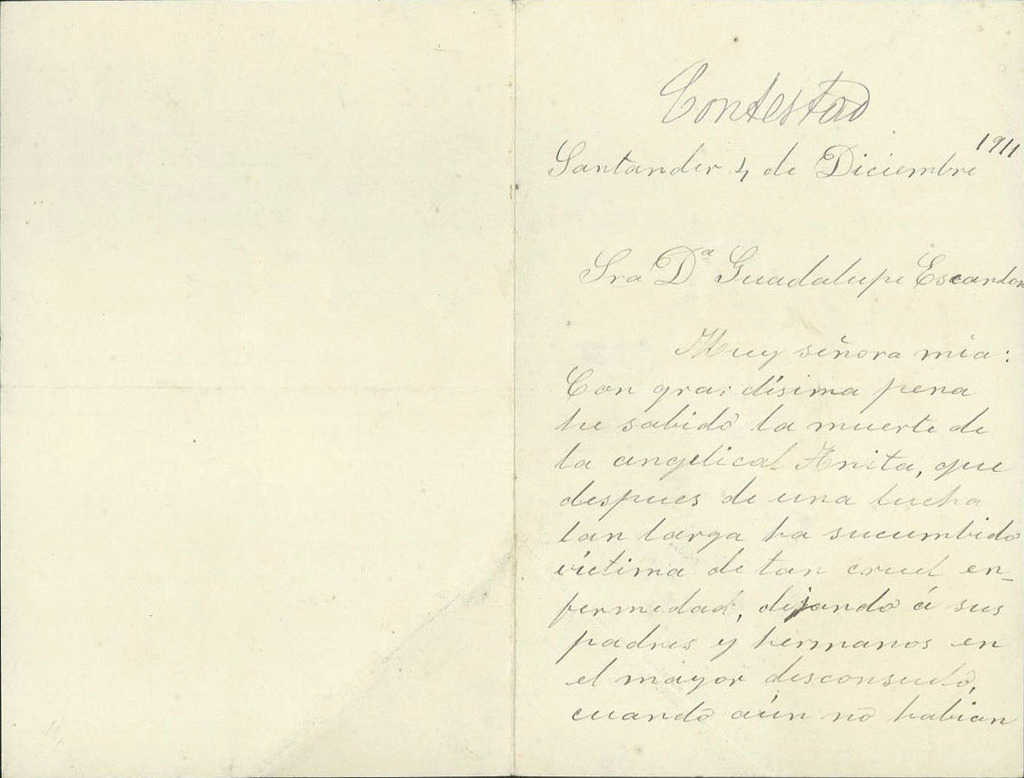 Contestad
1911
Santander 4 de Diciembre
Sra Dª Guadalupe Escandon
Muy señora mia:
Con grandísima pena
he sabido la muerte de
la angelical Anita, que
despues de una lucha
tan larga ha sucumbido
víctima de tan cruel en-
fermedad, dejando á sus
padres y hermanos en
el mayor desconsuelo,
cuando aún no habian